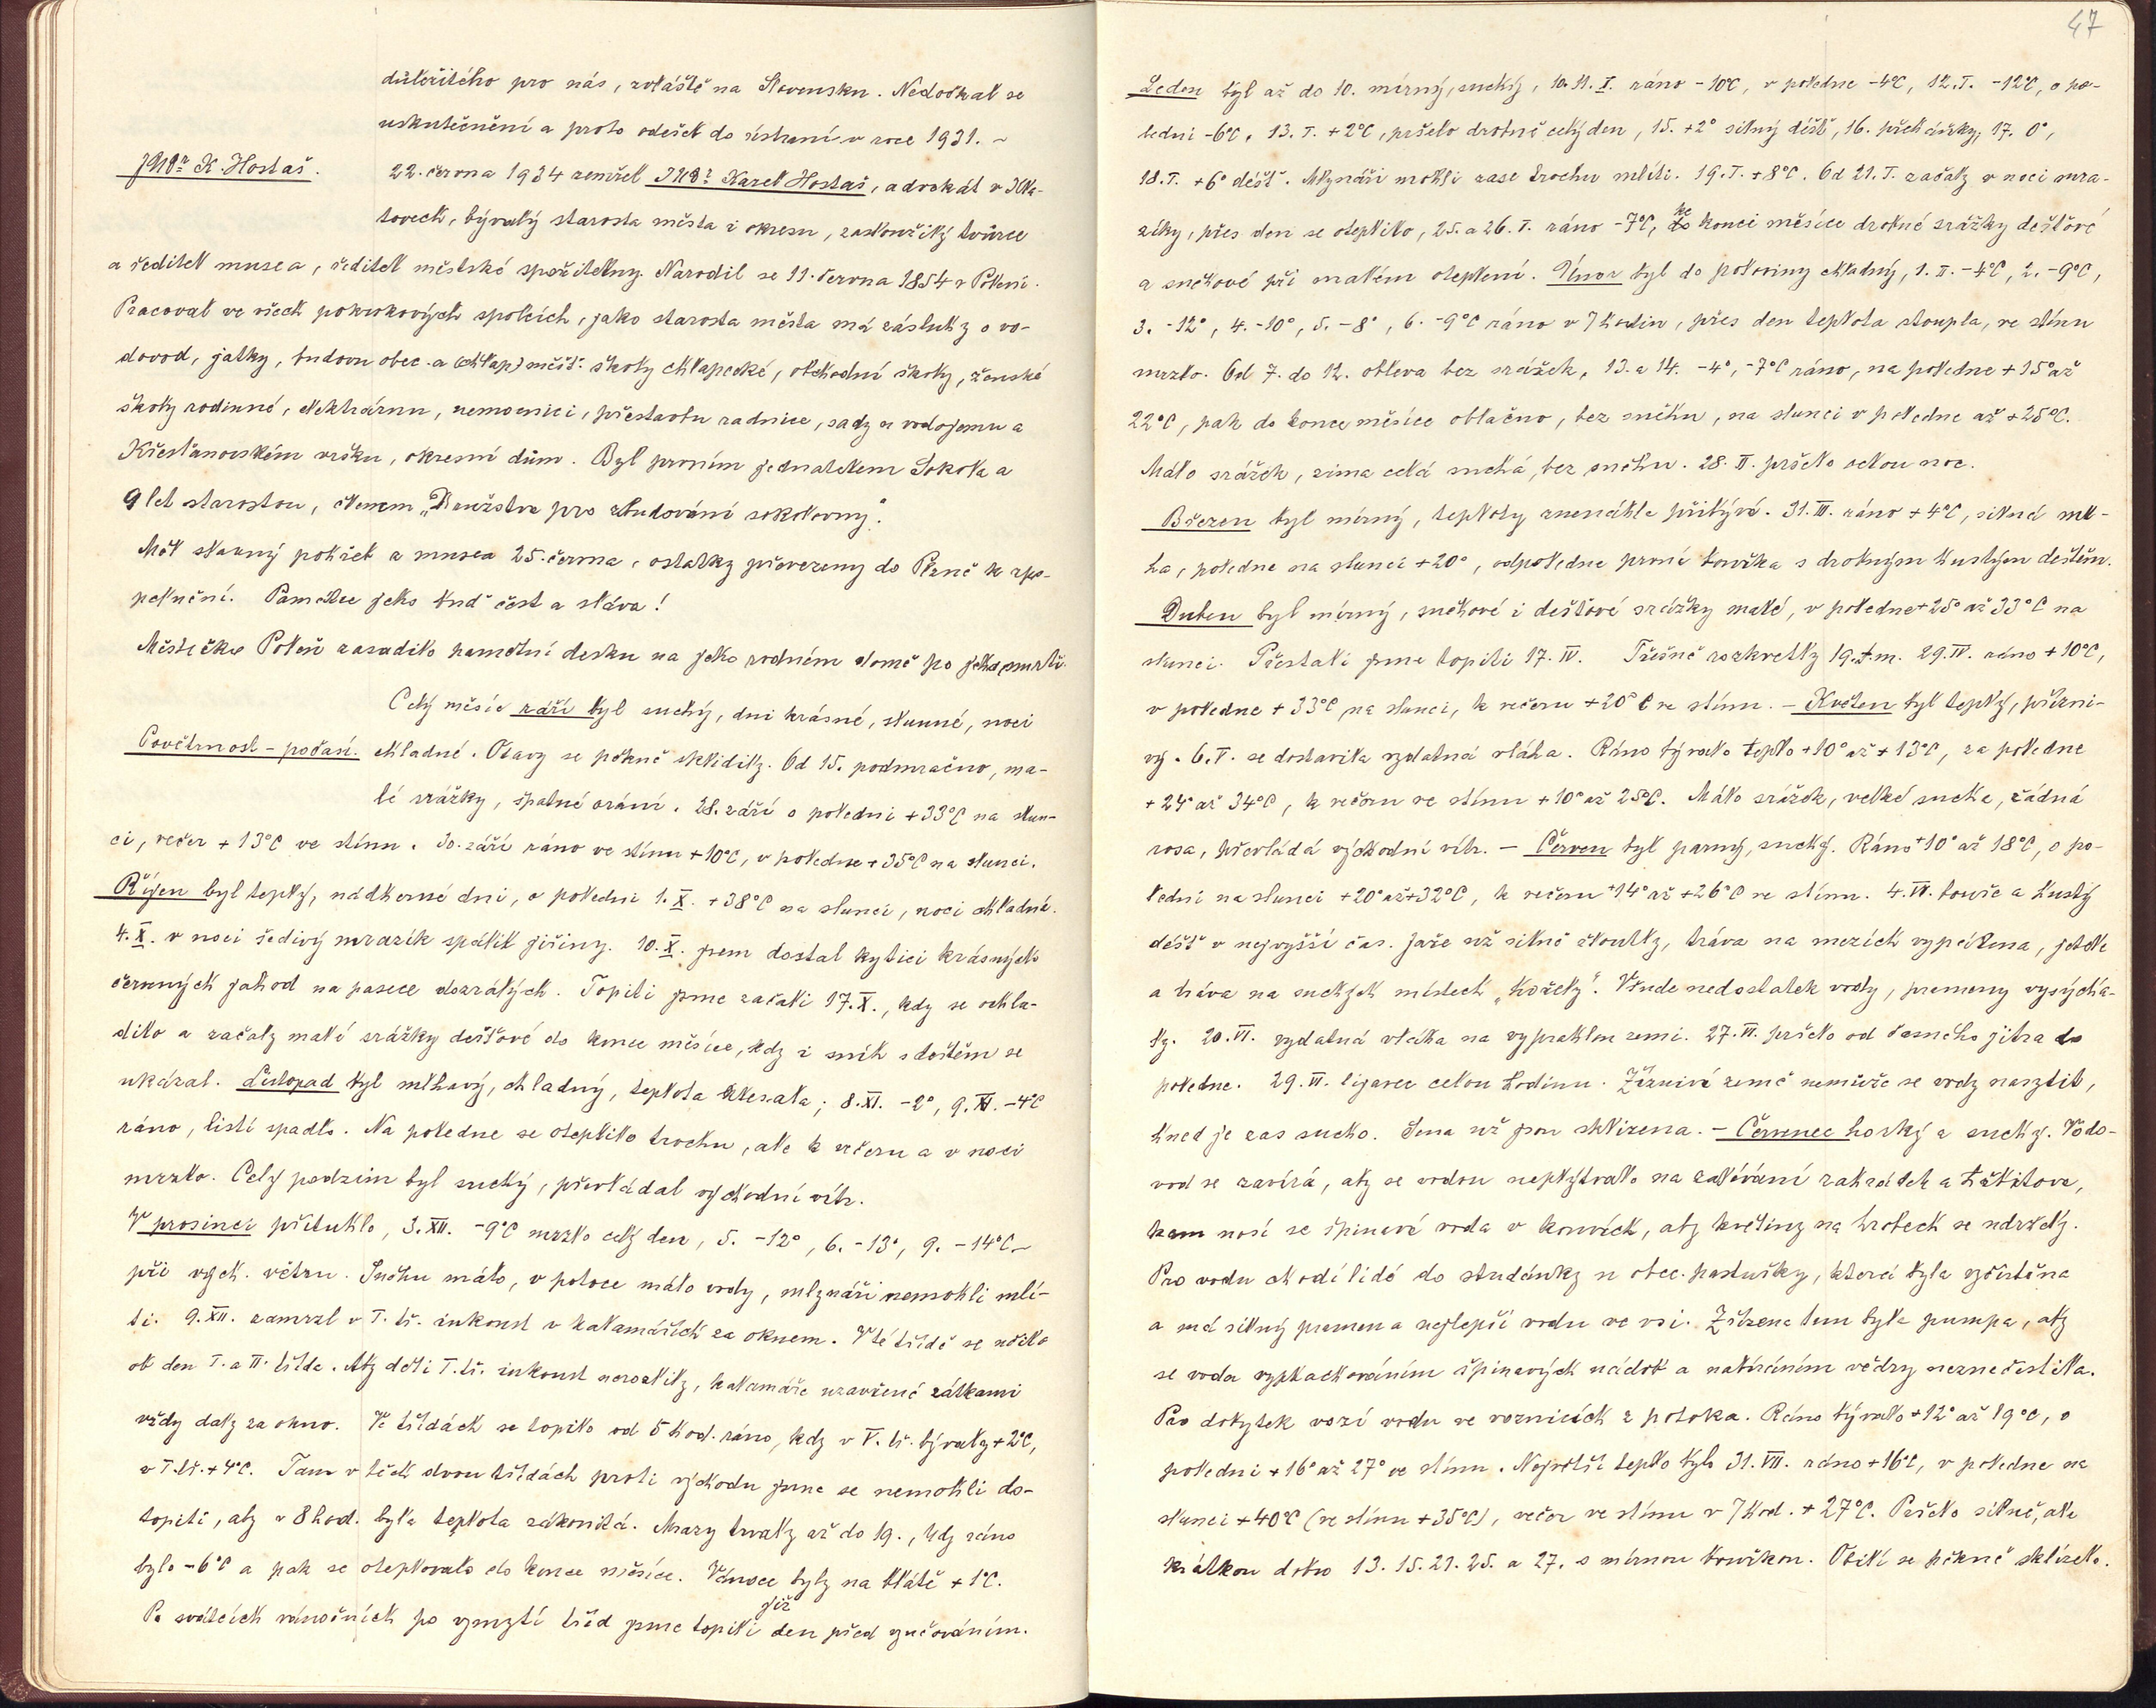 důležitého pro nás, zvláště na Slovensku. Nedočkal se
uskutečnění a proto odešel do ústraní v roce 1931. –
JUDr K. Hostaš.
22. června 1934 zemřel JUDr Karel Hostaš, advokát v Kla-
tovech, bývalý starosta města i okresu, zasloužilý tvůrce
a ředitel musea, ředitel městské spořitelny. Narodil se 11. června 1854 v Poleni.
Pracoval ve všech pokrokových spolcích, jako starosta města má zásluhy o vo-
dovod, jatky, budovu obec. a (chlap) měšť. školy chlapecké, obchodní školy, ženské
školy rodinné, elektrárnu, nemocnici, přestavbu radnice, sady u vodojemu a
Křesťanovském vršku, okresní dům. Byl prvním jednatelem Sokola a
9 let starostou, členem „Družstva pro zbudování sokolovny“.
Měl slavný pohřeb z musea 25. června, ostatky převezeny do Plzně k zpo-
pelnění. Památce jeho buď čest a sláva!
Městečko Poleň zasadilo pamětní desku na jeho rodném domě po jeho smrti.
Celý měsíc září byl suchý, dni krásné, slunné, noci
Povětrnost – počasí.
chladné. Otavy se pěkně sklidily. Od 15. podmračno, ma-
lé srážky, špatné orání. 28. září o poledni +33°C na slun-
ci, večer +13°C ve stínu. 30. září ráno ve stínu +10°C, v poledne +35°C na slunci.
Říjen byl teplý, nádherné dni, o poledni 1. X. +38°C na slunci, noci chladné.
4. X. v noci šedivý mrazík spálil jiřiny. 10. X. jsem dostal kytici krásných
červených jahod na pasece dozrálých. Topiti jsme začali 17. X., kdy se ochla-
dilo a začaly malé srážky dešťové do konce měsíce, kdy i sníh s deštěm se
ukázal. Listopad byl mlhavý, chladný, teplota klesala; 8. XI. -2°, 9. XI. -4°C
ráno, listí spadlo. Na poledne se oteplilo trochu, ale k večeru a v noci
mrzlo. Celý podzim byl suchý, převládal východní vítr.
V prosinci přituhlo, 3. XII. -9°C mrzlo celý den, 5. -12°, 6. -13°, 9. -14°C –
při vých. větru. Sněhu málo, v potoce málo vody, mlynáři nemohli mlí-
ti. 9. XII. zamrzl v I. tř. inkoust v kalamářích za oknem. V té třídě se učilo
ob den I. a II. třída. Aby děti I. tř. inkoust nerozlily, kalamáře uzavřené zátkami
vždy daly za okno. Ve třídách se topilo od 5 hod. ráno, kdy v V. tř. bývaly +2°C,
v I. tř. +4°C. Tam v těch dvou třídách proti východu jsme se nemohli do-
topiti, aby v 8 hod. byla teplota zákonitá. Mrazy trvaly až do 19., kdy ráno
bylo -6°C a pak se oteplovalo do konce měsíce. Vánoce byly na blátě +1°C.
Po svátcích vánočních po vymytí tříd jsme topili již den před vyučováním.
47
Leden byl až do 10. mírný, suchý, 10. 11. I. ráno -10°C, v poledne -4°C, 12. I. -12°C, o po-
ledni -6°C, 13. I. +2°C, pršelo drobně celý den, 15. +2° silný déšť, 16. přeháňky, 17. 0°,
18. I. +6° déšť. Mlynáři mohli zase trochu mlíti. 19. I. +8°C. Od 21. I. začaly v noci mra-
zíky, přes den se oteplilo, 25. a 26. I. ráno -7°C, ke konci měsíce drobné srážky dešťové
a sněhové při malém oteplení. Únor byl do poloviny chladný, 1. II. -4°C, 2. -9°C,
3. -12°, 4. -10°, 5. -8°, 6. -9°C ráno v 7 hodin, přes den teplota stoupla, ve stínu
mrzlo. Od 7. do 12. obleva bez srážek, 13. a 14. -4°, -7°C ráno, na poledne +15° až
22°C, pak do konce měsíce oblačno, bez sněhu, na slunci v poledne až +25°C.
Málo srážek, zima celá suchá, bez sněhu. 28. II. pršelo celou noc.
Březen byl mírný, teploty znenáhla přibývá. 31. III. ráno +4°C, silná ml-
ha, poledne na slunci +20°, odpoledne první bouřka s drobným hustým deštěm.
Duben byl mírný, sněhové i dešťové srážky malé, v poledne +25° až 33°C na
slunci. Přestali jsme topiti 17. IV. Třešně rozkvetly 19. t. m. 29. IV. ráno +10°C,
v poledne +33°C na slunci, k večeru +20°C ve stínu. – Květen byl teplý, přízni-
vý. 6. V. se dostavila vydatná vláha. Ráno bývalo teplo +10° až +13°C, za poledne
+24° až 34°C, k večeru ve stínu +10° až 25°C. Málo srážek, velké sucho, žádná
rosa, převládá východní vítr. – Červen byl parný, suchý. Ráno +10° až 18°C, o po-
ledni na slunci +20° až +32°C, k večeru +14° až +26°C ve stínu. 4. VI. bouře a hustý
déšť v nejvyšší čas. Jaře už silně žloutly, tráva na mezích vypálena, jetele
a tráva na suchých místech „hořely“. Všude nedostatek vody, prameny vysýcha-
ly. 20. VI. vydatná vláha na vyprahlou zemi. 27. VI. pršelo od časného jitra do
poledne. 29. VI. lijavec celou hodinu. Žíznivé země nemůže se vody nasytit,
hned je zas sucho. Sena už jsou sklizena. – Červenec horký a suchý. Vodo-
vod se zavírá, aby se vodou neplýtvalo na zalévání zahrádek a hřbitova,
kam nosí se špinavá voda v konvích, aby květiny na hrobech se udržely.
Pro vodu chodí lidé do studánky u obec. pastušky, která byla vyčištěna
a má silný pramen a nejlepší vodu ve vsi. Zřízena tam byla pumpa, aby
se voda vyplachováním špinavých nádob a nabíráním vědry neznečistila.
Pro dobytek vozí vodu ve voznicích z potoka. Ráno bývalo +12° až 19°C, o
poledni +16° až 27° ve stínu. Největší teplo bylo 31. VII. ráno +16°C, v poledne na
slunci +40°C (ve stínu +35°C), večer ve stínu v 7 hod. +27°C. Pršelo silně, ale
krátkou dobu 13. 15. 21. 25. a 27. s mírnou bouřkou. Obilí se pěkně sklízelo.